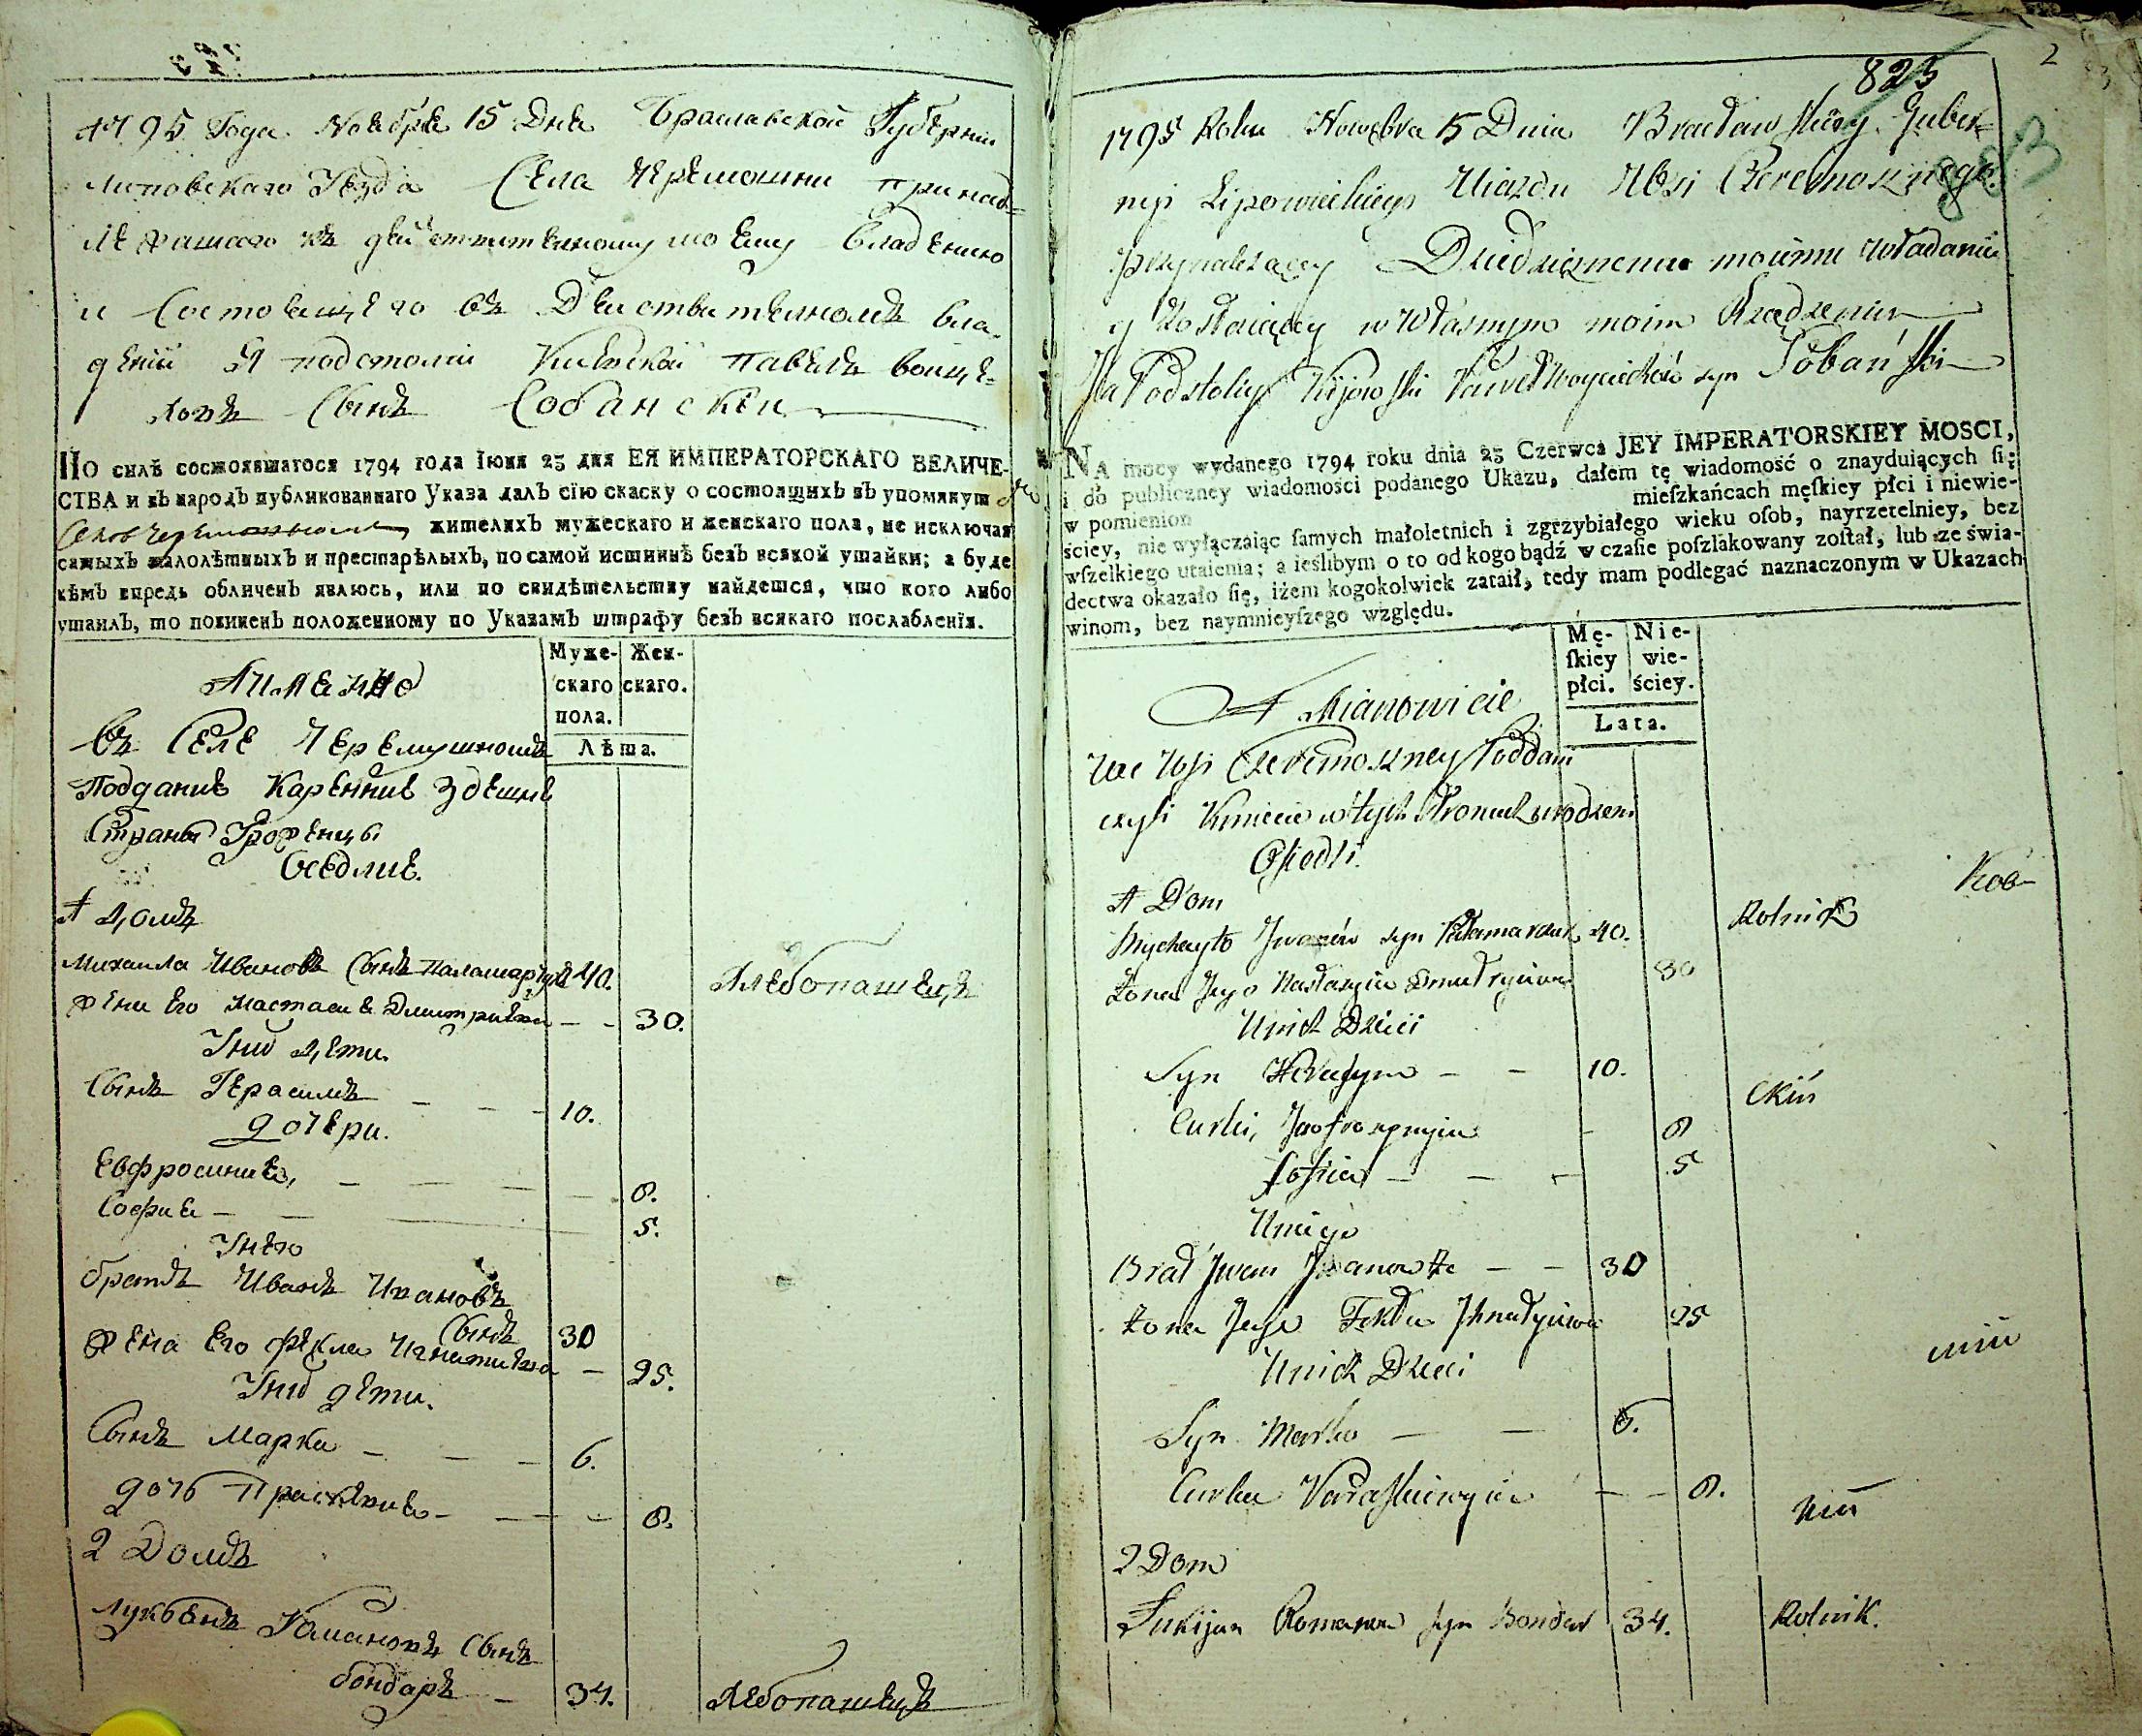 1795 Года Ноября 15 Дня Браславской Губернии
Липовскаго Уезда Села Черемошни принад=
лежащаго къ действителному моему владению
и Состоящего въ Действителномъ вла-
дении Я подстолии Киевский Павелъ воице-
ховъ Сынъ Собански
ПО силѣ состоявшагося 1794 года Іюня 23 дня ЕЯ ИМПЕРАТОРСКАГО ВЕЛИЧЕ-
СТВА и въ народъ публикованнаго Указа далъ сію скаску о состоящихъ въ упомянут
жителяхъ мужескаго и женскаго пола, не исключая
самыхъ малолѣтныхъ и престарѣлыхъ, по самой истиннѣ безъ всякой утайки; а буде
кѣмъ впредь обличенъ явлюсь, или по свидѣтельству найдется, что кого либо
утаилъ, то повиненъ положенному по Указамъ штрафу безъ всякаго послабленія.
Муже- Жен-
скаго скаго.
пола.
Лѣта.
А имено
въ Селе Черемушномъ
Поддание Каренние Здешне
Страны Уроженцы
Оседлие.
1 Домъ
Михаила Ивановъ Сынъ Паламарчукъ 40. Хлебопашецъ
Жена Его Настася Дмитриева - - 30.
У них Дети.
Сынъ Герасимъ - - - 10.
дочери.
Евфросиния, - - - - 8.
София - - 5.
У него
братъ Иванъ Ивановъ
Сынъ 30
Жена Его Фекла Игнатиева - 25.
У них дети.
Сынъ Марко - - - 6.
дочь Прасковия - - - 8.
2 Домъ
Лукьянъ Романовъ Сынъ
бондаръ - 34. Хлебопашецъ
2
823
1795 Roku Nowębra 15 Dnia Bracławskiey Guber=
nij Lipowieckiego Uiazdu Wsi Czeremoszniego
przynależącey Dziedzicznemu moiemu władaniu
y Zostaiącey w Własnym moim Rządzeniu
Ja Podstolij Kijowski Paweł Woyciechów syn Sobański
NA mocy wydanego 1794 roku dnia 23 Czerwca JEY IMPERATORSKIEY MOSCI,
i do publiczney wiadomości podanego Ukazu, dałem tę wiadomość o znayduiących ſię
w pomienion mieſzkańcach męſkiey płci i niewie-
ściey, nie wyłączaiąc ſamych małoletnich i zgrzybiałego wieku oſob, nayrzetelniey, bez
wſzelkiego utaienia; a ieślibym o to od kogo bądź w czaſie poſzlakowany zoſtał, lub ze świa-
dectwa okazało ſię, iżem kogokolwiek zataił, tedy mam podlegać naznaczonym w Ukazach
winom, bez naymnieyſzego względu.
Mę- Nie-
ſkiey wie-
płci. ściey.
Lata.
A Mianowicie
We Wsi Czeremoszney Poddani
czyli Kmiecie w tych Stronach urodzeni
Osiedli.
1 Dom
Mychayło Iwanów syn Pałamarczuk 40. Rolnik
Żona Jego Nastazyia Dmutryiowa 30
U nich Dzieci
Syn Herasym - - 10.
Curki, Jaofrozynyia - 8
Zofiia - - - 5
U niego
Brat Iwan Iwanow - - 30
Żona Jego Tekla Ihnatyiowa 25
U nich Dzieci
Syn Marko - - 6.
Curka Paraskiewyia - - 8.
2 Dom
Łukijan Romanow syn Bondar 34. Rolnik.